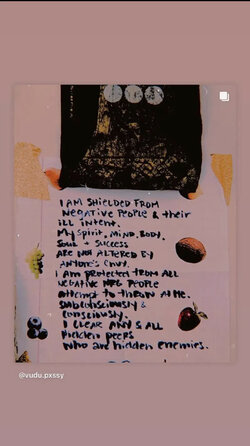 I AM SHIELDED FROM
NEGATIVE PEOPLE & their
ILL INTENT.
My SPIRIT, MIND, BODY,
SOUL + SUCCESS
ARE NOT ALTERED BY
ANYONE'S ENVY.
I AM PROTECTED FROM ALL
NEGATIVE NRG PEOPLE
Attempt to throw AT ME.
SUBCONSCIOUSLY &
CONSCIOUSLY.
I CLEAR ANY & ALL
HIDDEN PEEPS
WHO ARE HIDDEN ENEMIES.
@vudu.pxssy